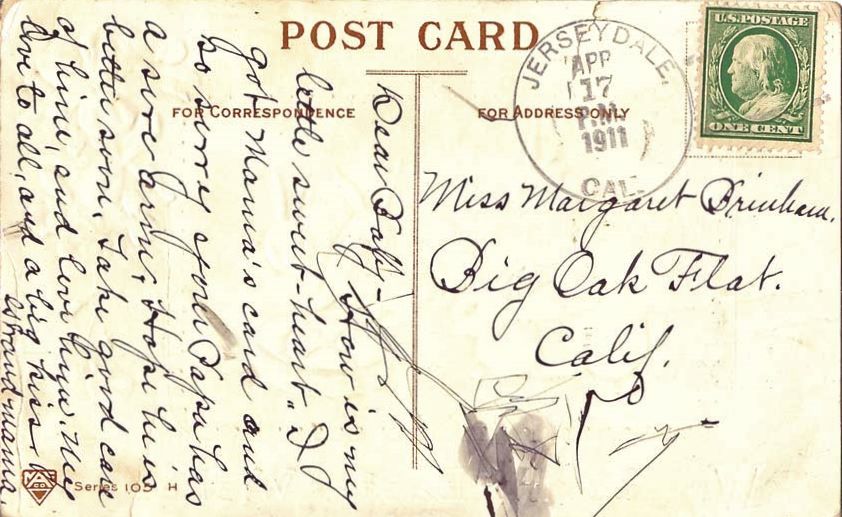 POST CARD
FOR CORRESPONDENCE
FOR ADDRESS ONLY
U.S. POSTAGE
ONE CENT
JERSEYDALE,
APR
17
P.M.
1911
CAL.
Miss Margaret
Big Oak Flat.
Calif.
Dear
How is my
little sweet-heart. I
got Mama's card and
so sorry your Papa has
a sore arm, Hope he is
better soon, Take good care
of him, and love him.
love to all, and a big kiss
Grandmama.
Series 105 H